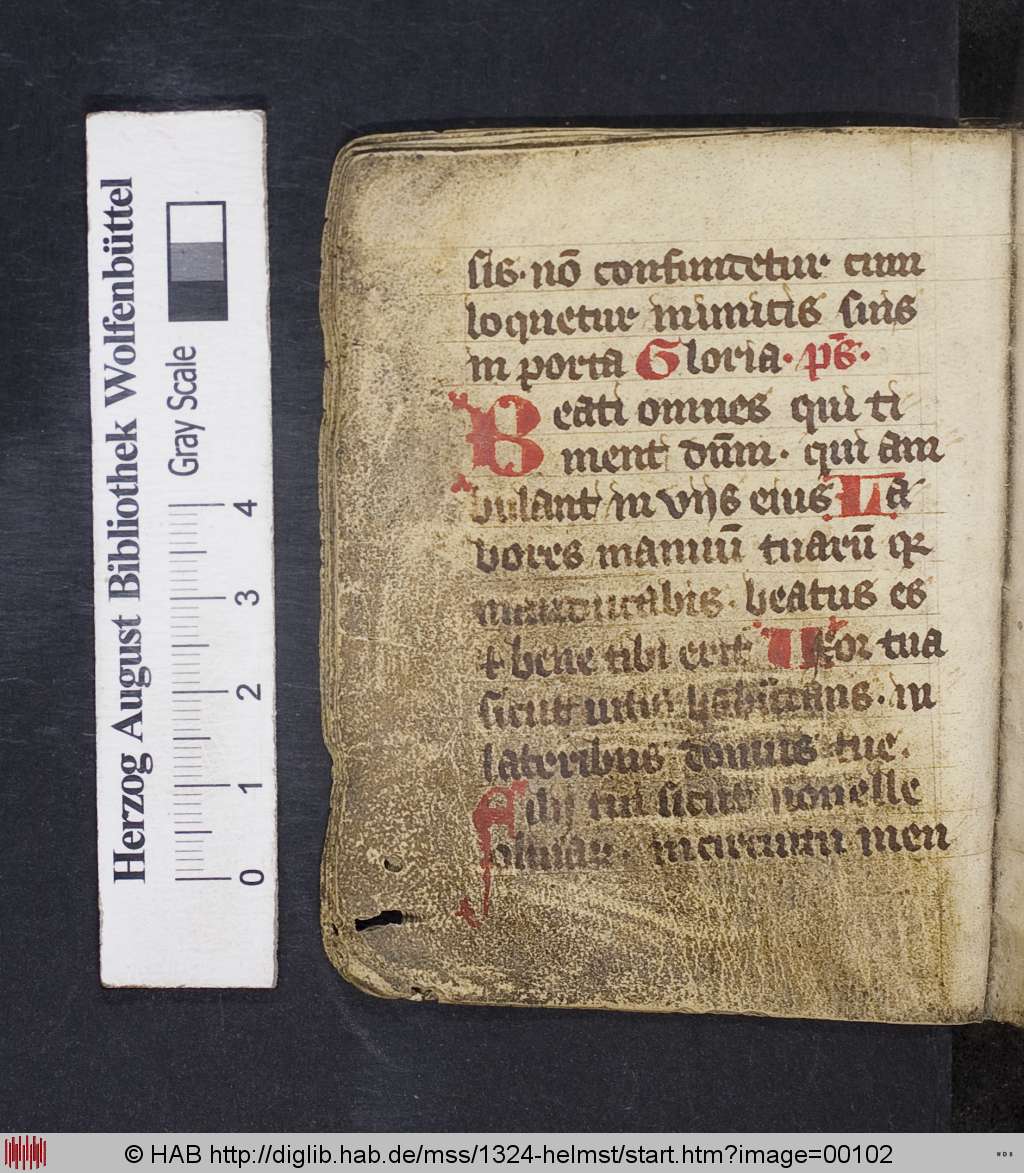 sis. nō confundetur cum
loquetur inimicis suis
in porta Gloria. ps̄.
Beati omnes qui ti
ment dūm. qui am
bulant in vijs eius La
bores manuū tuarū q̄
manducabis. beatus es
& bene tibi erit Uxor tua
sicut uitis habūdans. in
lateribus domus tue.
Filij tui sicut nouelle
oliuar. in circuitu men
Herzog August Bibliothek Wolfenbüttel
Gray Scale
0 1 2 3 4
© HAB http://diglib.hab.de/mss/1324-helmst/start.htm?image=00102